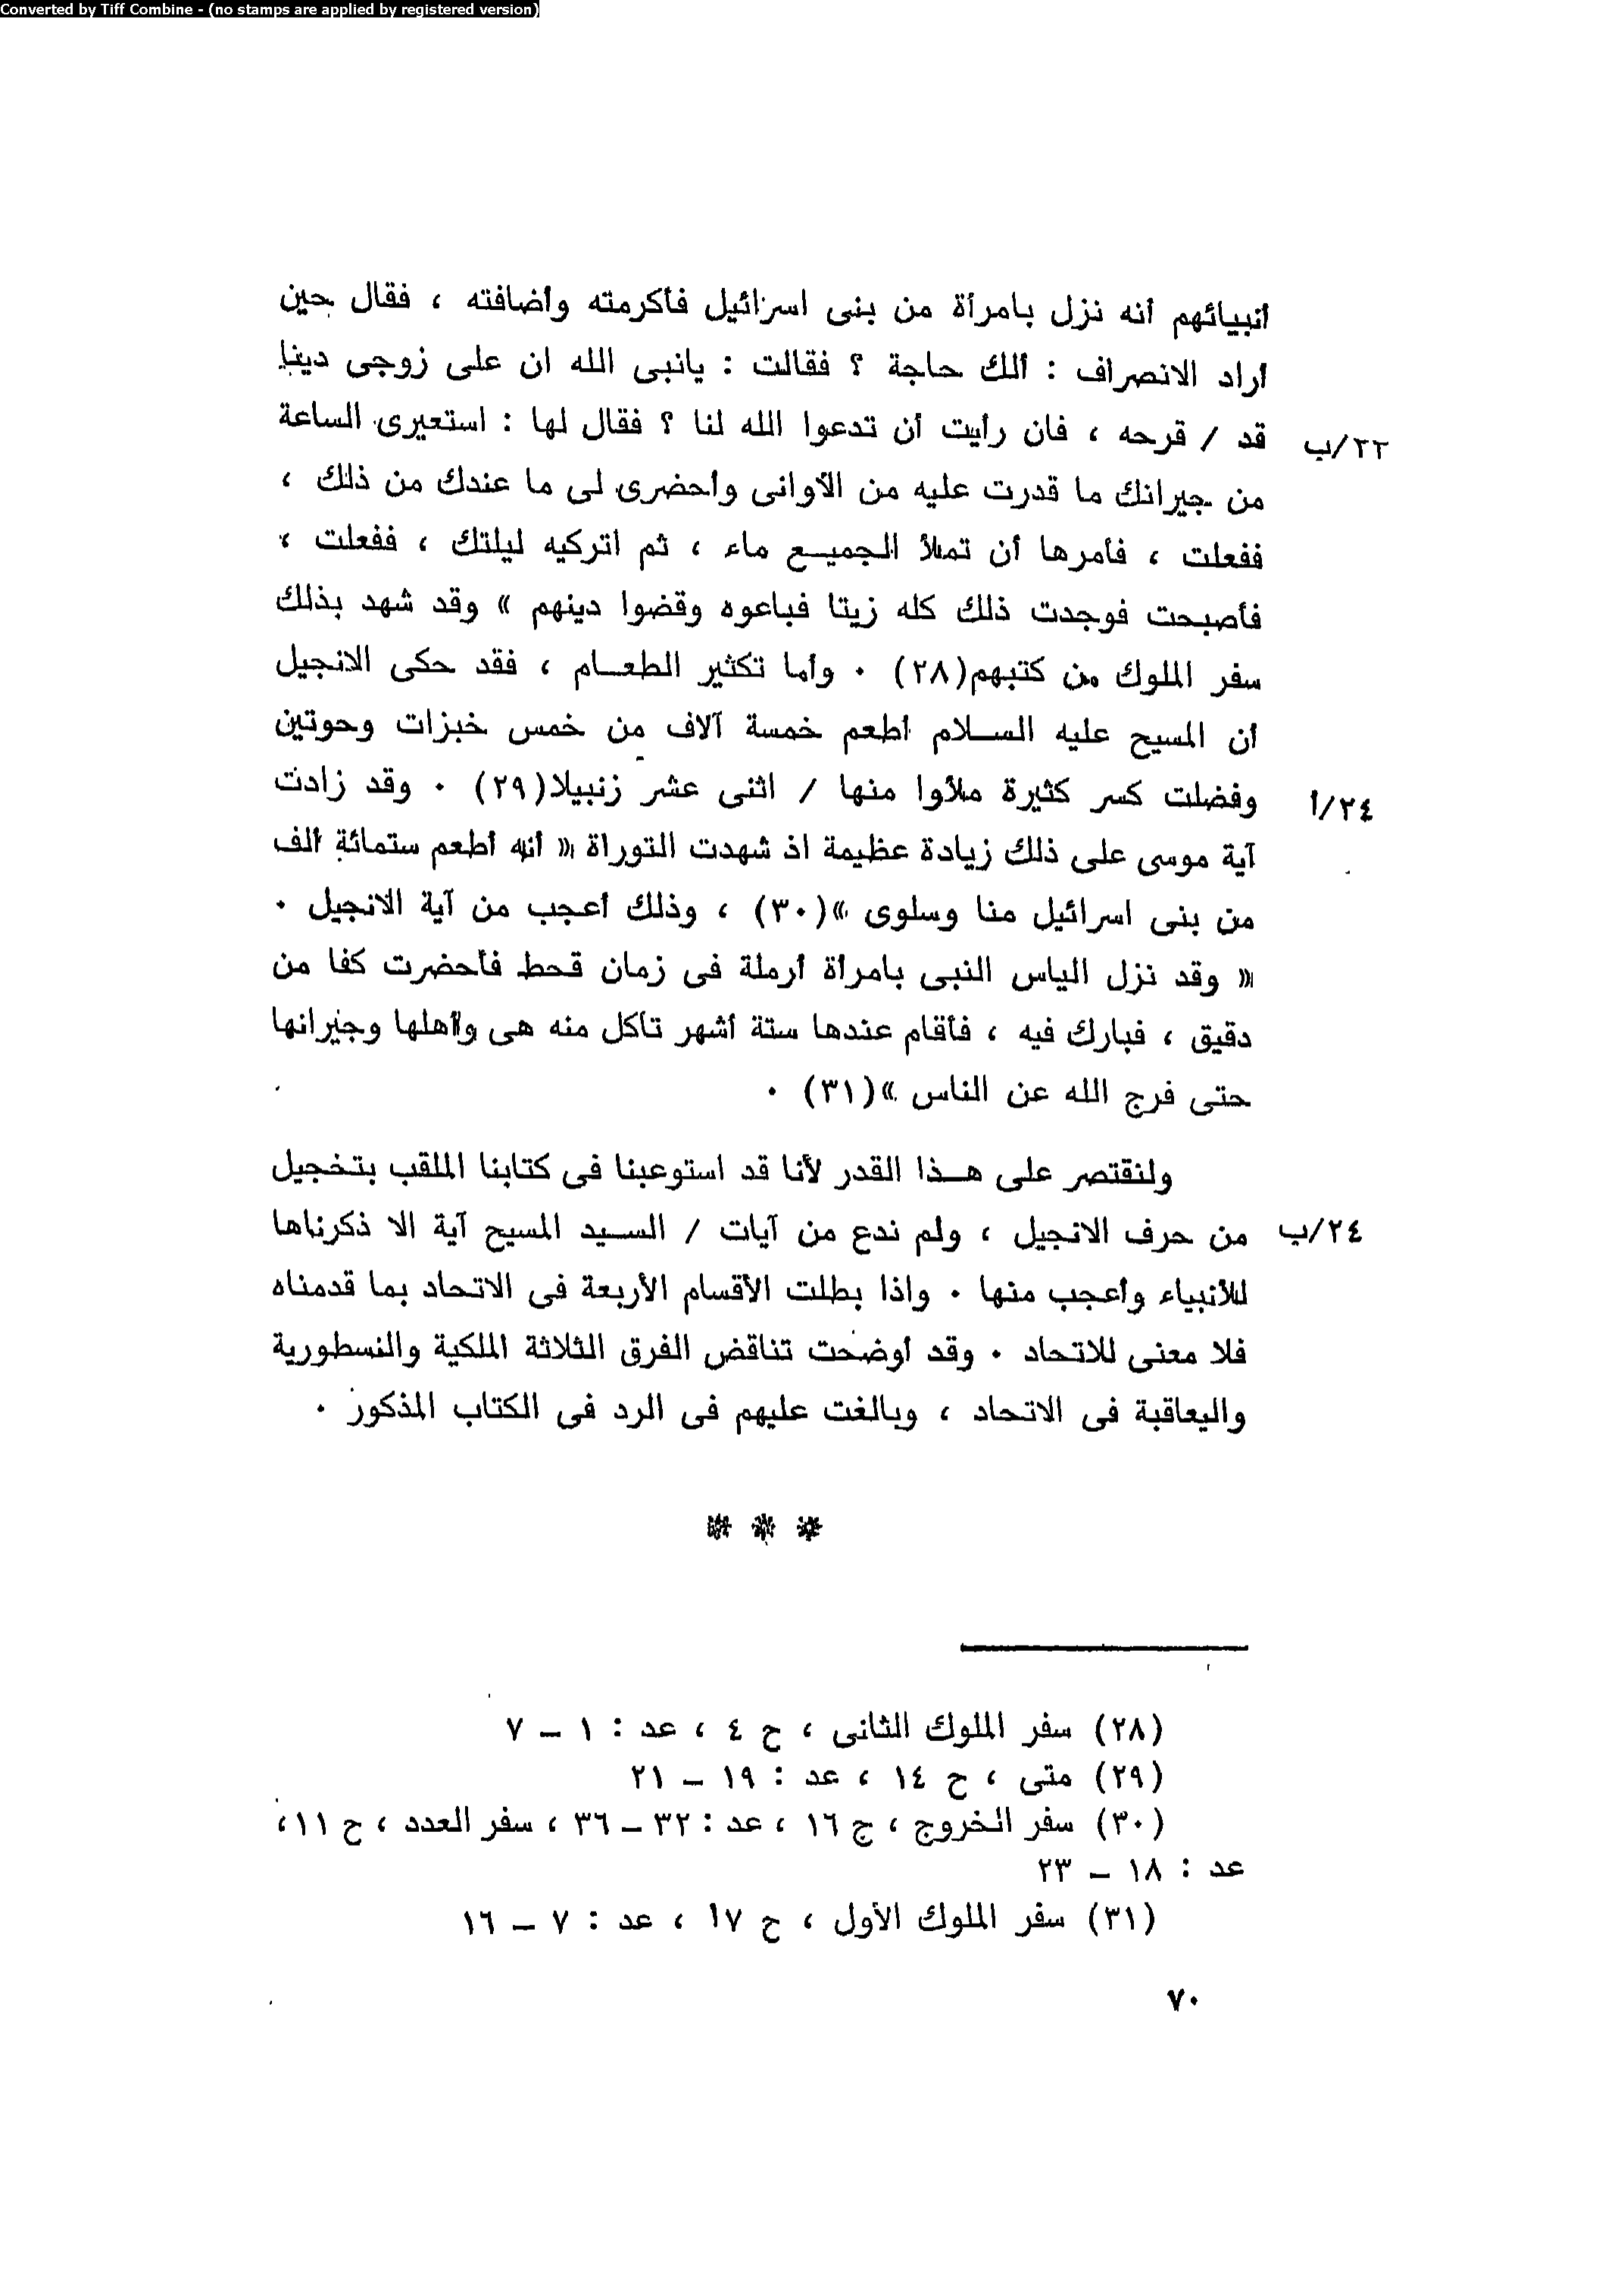 Converted by Tiff Combine - (no stamps are applied by registered version)
أنبيائهم أنه نزل بامرأة من بنى اسرائيل فأكرمته وأضافته ، فقال حين
أراد الانصراف : ألك حاجة ؟ فقالت : يانبى الله ان على زوجى دينا
٢٢/ب قد / قرحه ، فان رأيت أن تدعوا الله لنا ؟ فقال لها : استعيرى الساعة
من جيرانك ما قدرت عليه من الأوانى واحضرى لى ما عندك من ذلك ،
ففعلت ، فأمرها أن تملأ الجميع ماء ، ثم اتركيه ليلتك ، ففعلت ،
فأصبحت فوجدت ذلك كله زيتا فباعوه وقضوا دينهم » وقد شهد بذلك
سفر الملوك من كتبهم(٢٨) ٠ وأما تكثير الطعام ، فقد حكى الانجيل
أن المسيح عليه السلام أطعم خمسة آلاف من خمس خبزات وحوتين
٢٤/أ وفضلت كسر كثيرة ملأوا منها / اثنى عشر زنبيلا(٢٩) ٠ وقد زادت
آية موسى على ذلك زيادة عظيمة اذ شهدت التوراة « أنه أطعم ستمائة ألف
من بنى اسرائيل منا وسلوى »(٣٠) ، وذلك أعجب من آية الانجيل ٠
« وقد نزل الياس النبى بامرأة أرملة فى زمان قحط فأحضرت كفا من
دقيق ، فبارك فيه ، فأقام عندها ستة أشهر تأكل منه هى وأهلها وجيرانها
حتى فرج الله عن الناس »(٣١) ٠
ولنقتصر على هذا القدر لأنا قد استوعبنا فى كتابنا الملقب بتخجيل
٢٤/ب من حرف الانجيل ، ولم ندع من آيات / السيد المسيح آية الا ذكرناها
للأنبياء وأعجب منها ٠ واذا بطلت الأقسام الأربعة فى الاتحاد بما قدمناه
فلا معنى للاتحاد ٠ وقد أوضحت تناقض الفرق الثلاثة الملكية والنسطورية
واليعاقبة فى الاتحاد ، وبالغت عليهم فى الرد فى الكتاب المذكور ٠
* * *
(٢٨) سفر الملوك الثانى ، ح ٤ ، عد : ١ – ٧
(٢٩) متى ، ح ١٤ ، عد : ١٩ – ٢١
(٣٠) سفر الخروج ، ج ١٦ ، عد : ٣٢ – ٣٦ ، سفر العدد ، ح ١١ ،
عد : ١٨ – ٢٣
(٣١) سفر الملوك الأول ، ح ١٧ ، عد : ٧ – ١٦
٧٠